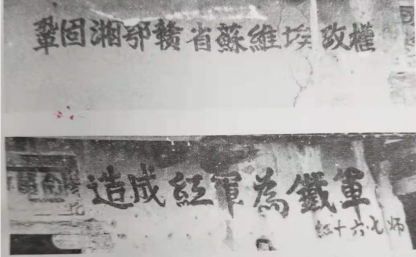 鞏固湘鄂赣省蘇維埃政權
造成紅軍為鐵軍
紅十六·七师